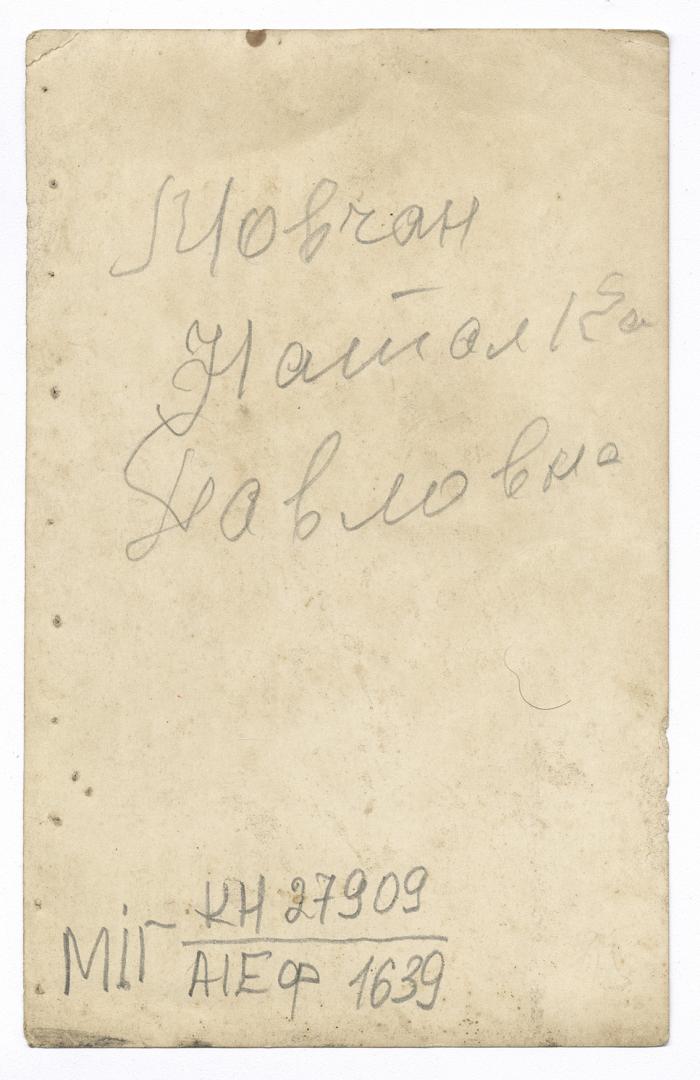 Мовчан
Наталка
Павловна
МІГ КН 27909
АІЕФ 1639